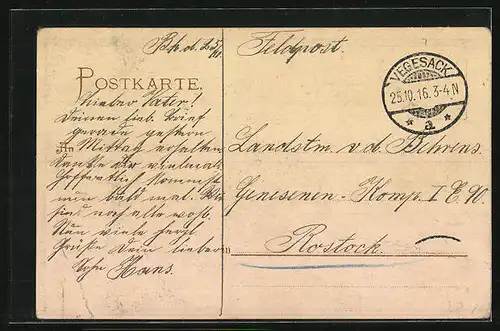 Bh. d. 25/10.
Feldpost.
VEGESACK
25.10.16.3-4N
* a *
POSTKARTE.
Lieber Vater!
Deinen lieb. Brief
gerade gestern
An
Mittag erhalten
Danke Dir vielmals
Hoffentlich kommst
nun bald mal. Wir
sind noch alle wohl.
Nun viele herzl.
Grüße Dein lieber
Sohn Hans.
Landstm. v. d. Behrens.
Genesenen-Komp. I E. 90.
Rostock.